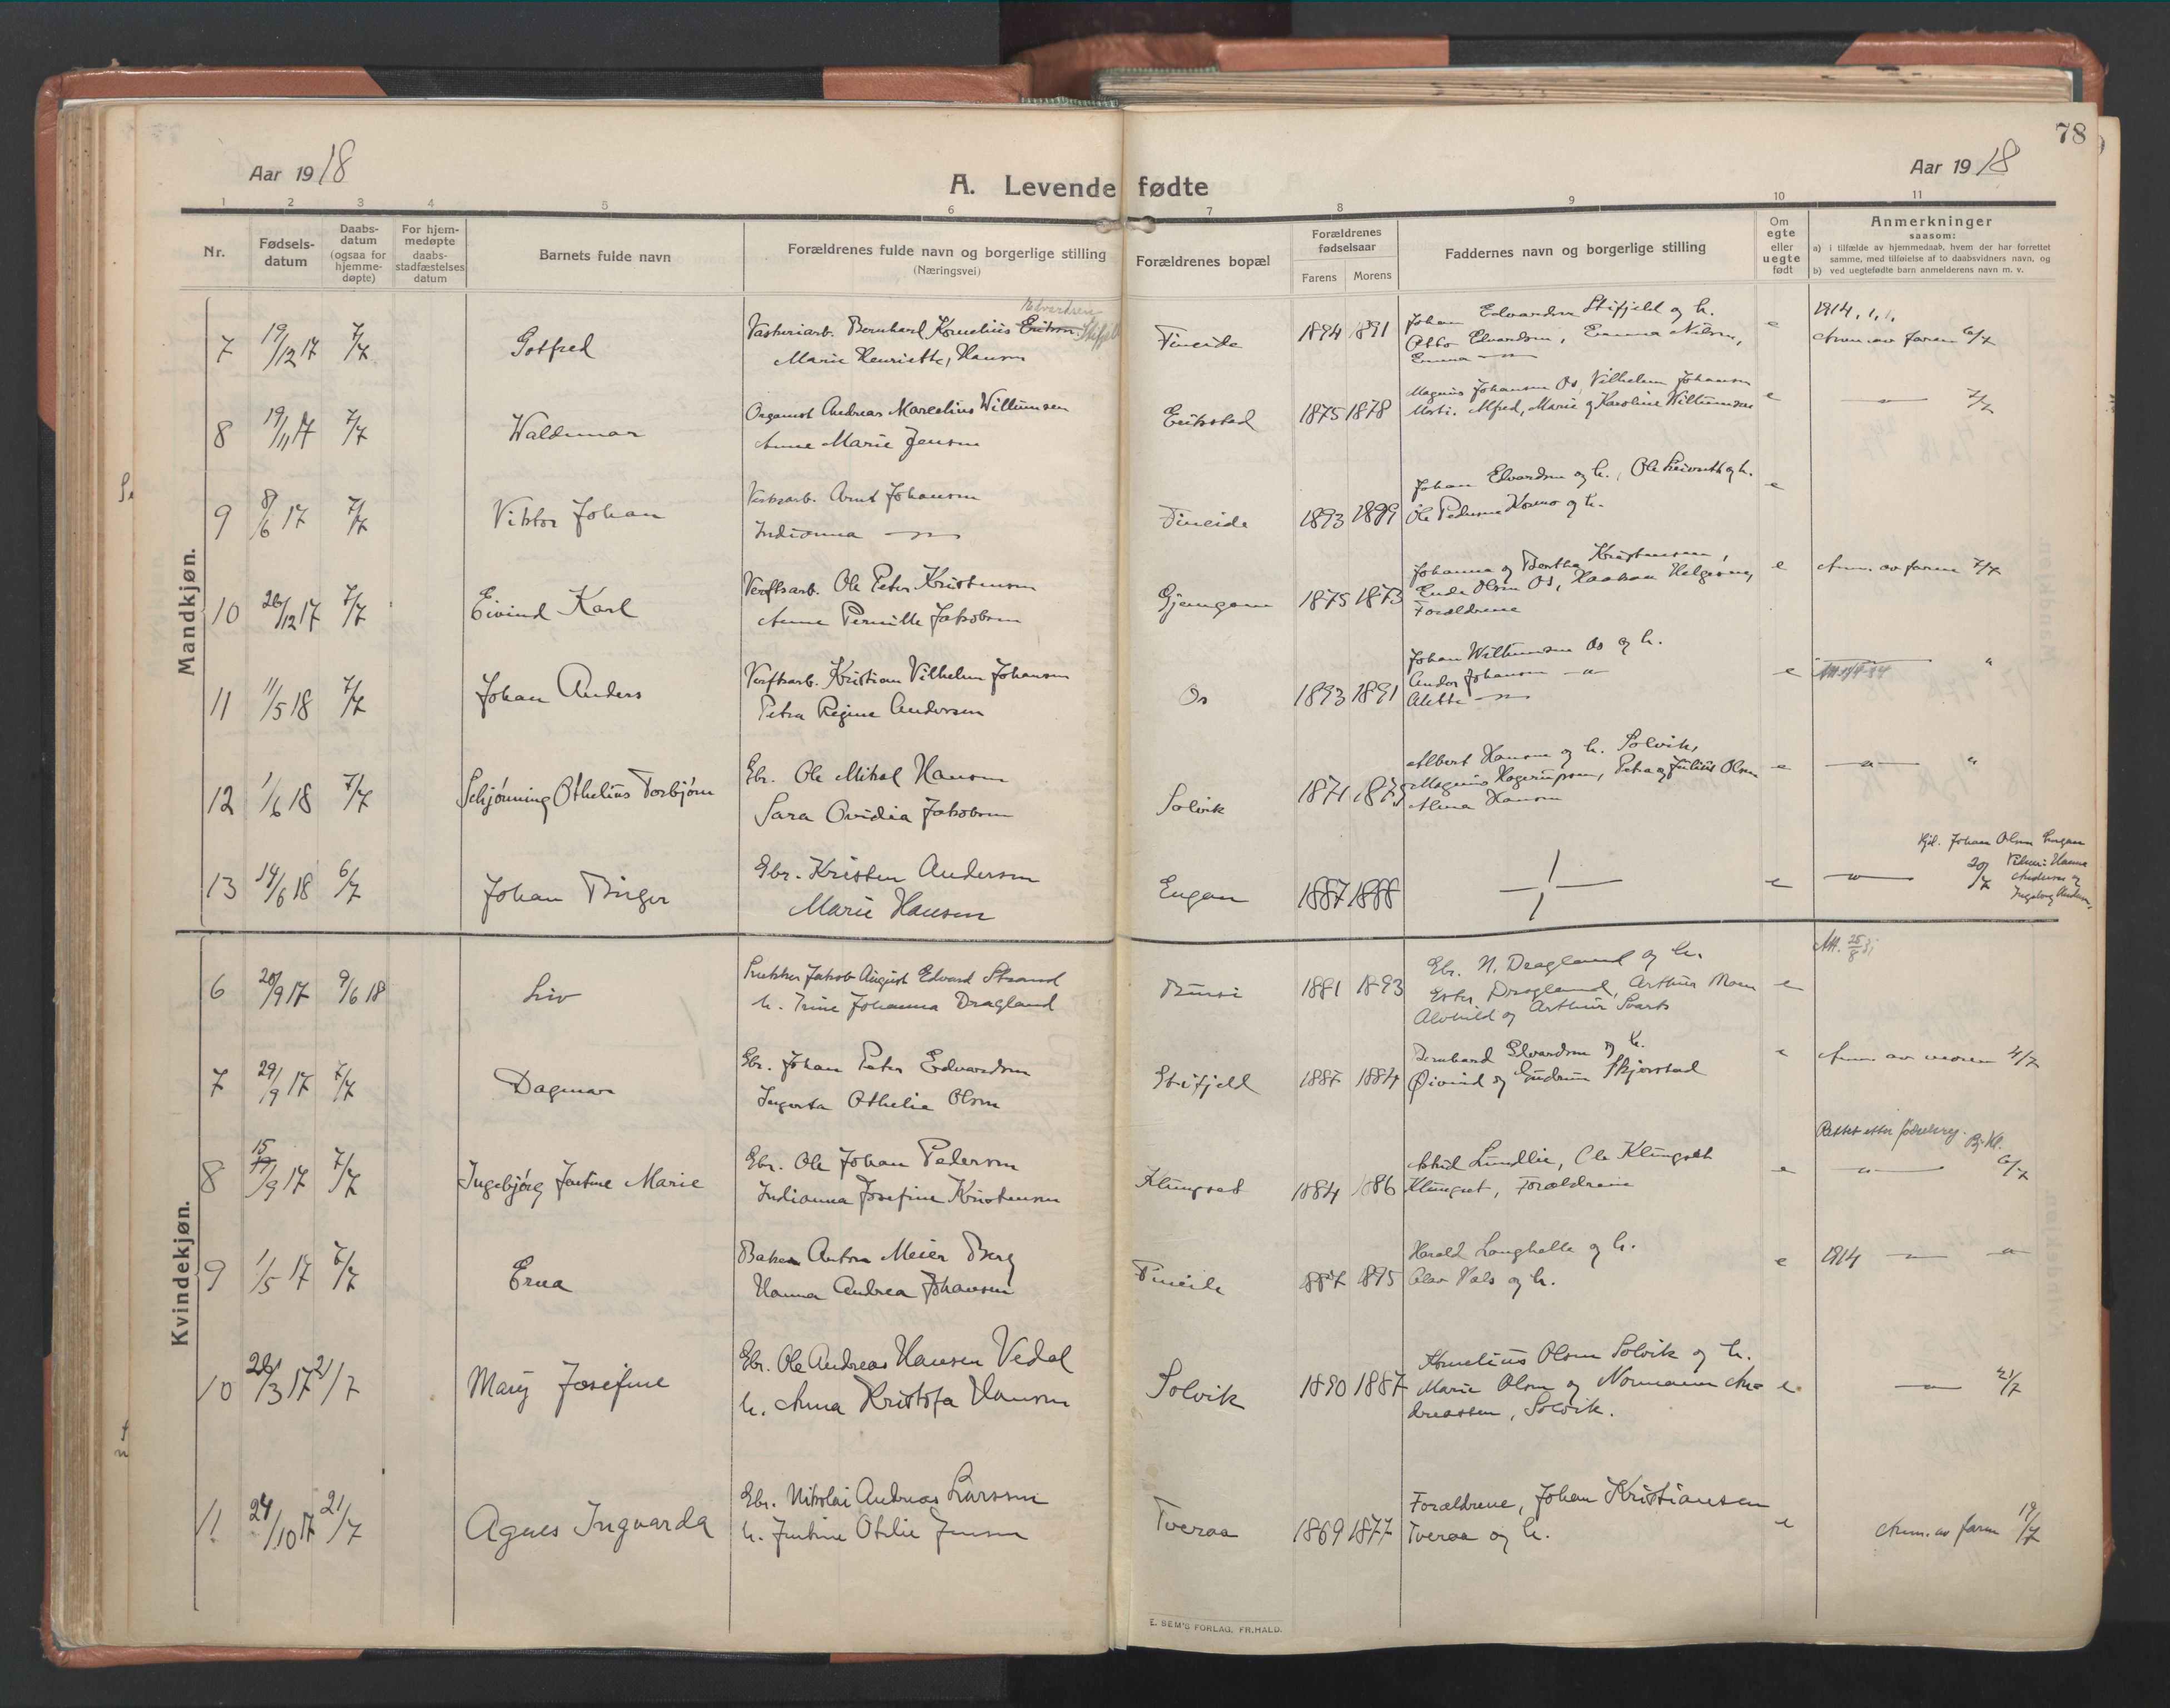 78
Aar 1918
A. Levende fødte
Aar 1918
1 2 3 4 5 6 7 8 9 10 11
Nr.
Fødsels-
datum
Daabs-
datum
(ogsaa for
hjemme-
døpte)
For hjem-
medøpte
daabs-
stadfæstelses
datum
Barnets fulde navn
Forældrenes fulde navn og borgerlige stilling
(Næringsvei)
Forældrenes bopæl
Forældrenes
fødselsaar
Farens Morens
Faddernes navn og borgerlige stilling
Om
egte
eller
uegte
født
Anmerkninger
saasom:
a) i tilfælde av hjemmedaab, hvem der har forrettet
samme, med tilføielse af to daabsvidners navn, og
b) ved uegtefødte barn anmelderens navn m. v.
Mandkjøn.
7 19/12 17 7/7 Gotfred
Bernhard Kornelius
Marie Henriette, Hansen
Fineide 1894 1891
Johan Edvardsen Stifjeld og h.
Otto Edvardsen, Emma Nilsen,
Emma — " —
e
1914, 1, 1,
Anm. av faren 6/7
8 19/11 17 7/7 Waldemar
Organist Andreas Marcelius Willumsen
Anne Marie Jensen
Erikstad 1875 1878
Magnus Johansen Os, Vilhelm Johansen
Alfred, Marie og Karoline Willumsen
e — " — 7/7
9 8/6 17 7/7 Viktor Johan
Arnt Johansen
Indianna — " —
Fineide 1893 1899
Johan Edvardsen og h., Ole og h.
Ole Pedersen og h.
e
10 26/12 17 7/7 Eivind Karl
Verftsarb. Ole Peter Kristensen
Anne Pernille Jakobsen
Gjemgam 1875 1873
Johanna og Bertha Kristensen,
Olsen Os, Haakon Helgesen,
Forældrene
e Anm. av faren 7/7
11 11/5 18 7/7 Johan Anders
Verftsarb. Kristian Vilhelm Johansen
Petra Regine Andersen
Os 1893 1891
Johan Willumsen Os og h.
Andor Johansen — " —
Alette — " —
e — " — "
12 1/6 18 7/7 Schjønning Othelius Torbjørn
Gbr. Ole Mikal Hansen
Sara Ovidia Jakobsen
Solvik 1871 1875
Albert Hansen og h. Solvik,
Magnus Hagerupsen, Petra og Julius Olsen
Alma Hansen
e — " — "
13 14/6 18 6/7 Johan Birger
Gbr. Kristen Andersen
Marie Hansen
Engan 1887 1888
e — " —
Hjd. Johan Olsen Engan
20/7 Vidner: Hanna
Andersen og
Ingeborg Andersen
Kvindekjøn.
6 20/9 17 9/6 18 Liv
Snekker Jakob August Edvard Strand
h. Trine Johanna Dragland
1881 1893
Gbr. N. Dragland og h.
Ester Dragland, Arthur Moen
Alvhild og Arthur Svarts
e Att. 25/8
7 29/9 17 7/7 Dagmar
Gbr. Johan Peter Edvardsen
Ingerta Othelie Olsen
Stifjeld 1887 1884
Bernhard Edvardsen og h.
Øivind og Gudrun Skjørstad
e Anm. av moren 4/7
8 15/9 17 7/7 Ingebjørg Justine Marie
Gbr. Ole Johan Pedersen
Indianna Josefine Kristensen
Klungset 1884 1886
Astrid Lundlie, Ole Klungset
Klungset, Forældrene
e
Rettet etter fødselsreg.
— " — 6/7
9 1/5 17 7/7 Erna
Baker Anton Meier Berg
Hanna Andrea Johansen
Fineide 1887 1895
Harald Langhelle og h.
Olav Vals og h.
e 1914 — " — "
10 28/3 17 21/7 Mary Josefine
Gbr. Ole Andreas Hansen Vedal
h. Anna Kristofa Hansen
Solvik 1890 1887
Kornelius Olsen Solvik og h.
Marie Olsen og Normann An-
dreassen, Solvik.
e. — " — 21/7
11 24/10 17 21/7 Agnes Ingvarda
Gbr. Nikolai Andreas Larssen
h. Justine Otelie Jensen
Tveraa 1869 1877
Forældrene, Johan Kristiansen
Tveraa og h.
e Anm. av faren 19/7
E. SEM'S FORLAG, FR.HALD.